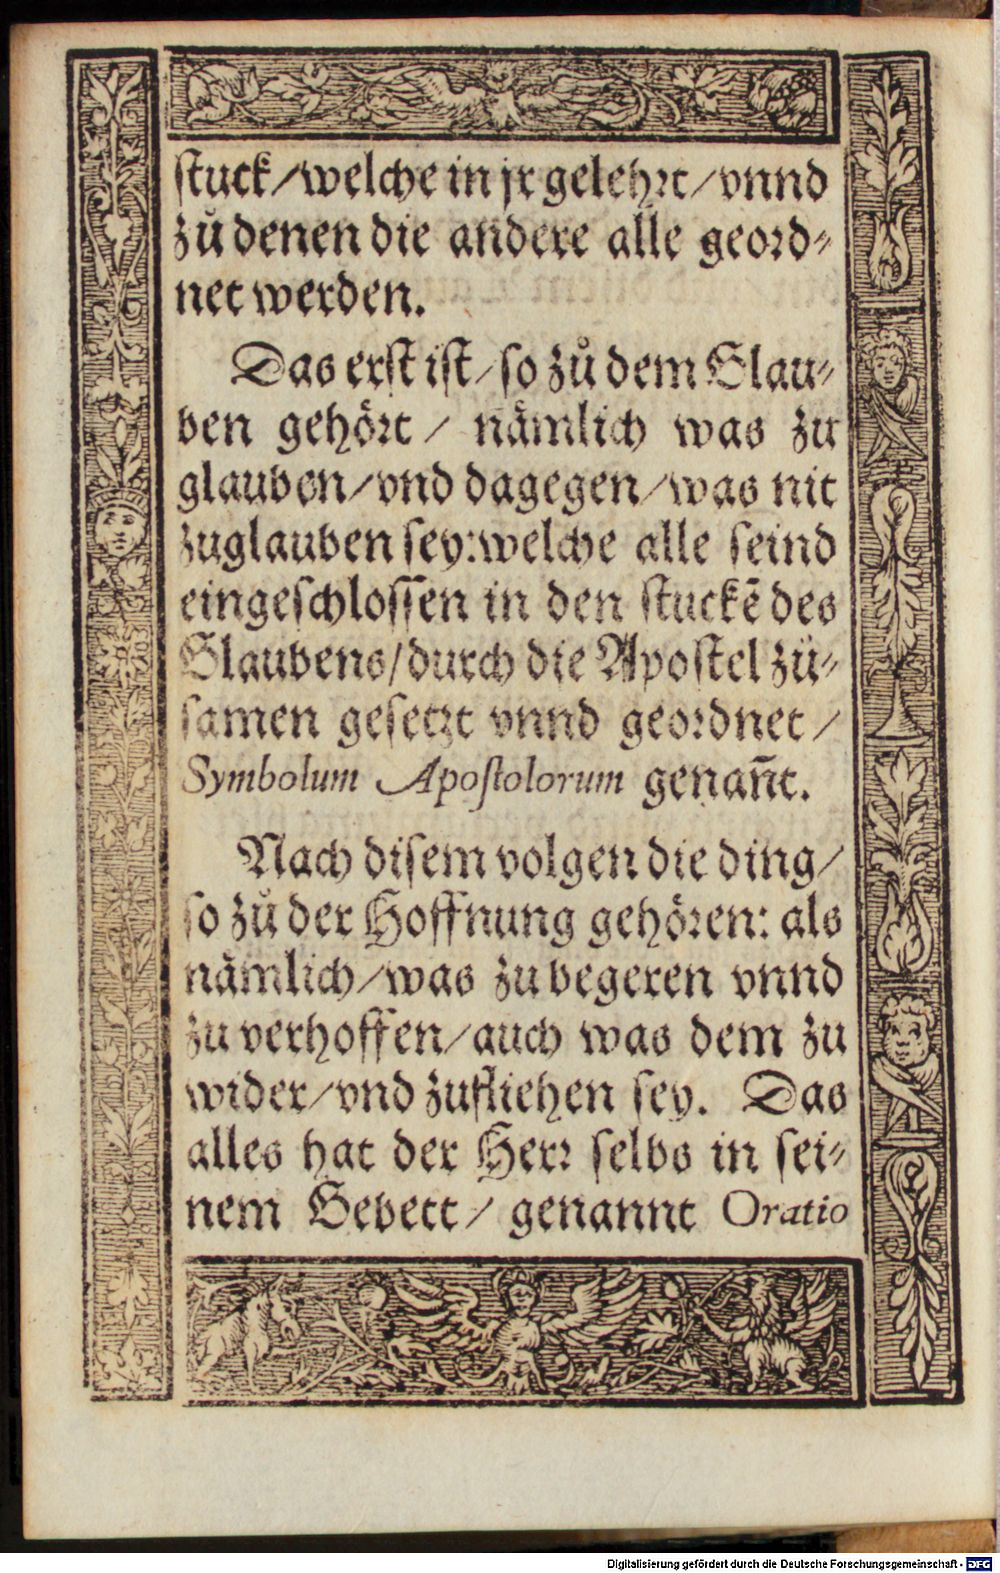 stuck/welche in jr gelehrt/vnnd
zů denen die andere alle geord⸗
net werden.
Das erst ist/so zů dem Glau⸗
ben gehört/ nämlich was zu
glauben/vnd dagegen/was nit
zuglauben sey:welche alle seind
eingeschlossen in den stuckē des
Glaubens/durch die Apostel zů⸗
samen gesetzt vnnd geordnet/
Symbolum Apostolorum genañt.
Nach disem volgen die ding/
so zů der Hoffnung gehören: als
nämlich/was zu begeren vnnd
zu verhoffen/auch was dem zu
wider/vnd zufliehen sey. Das
alles hat der Herr selbs in sei⸗
nem Gebett/ genannt Oratio
Digitalisierung gefördert durch die Deutsche Forschungsgemeinschaft - DFG